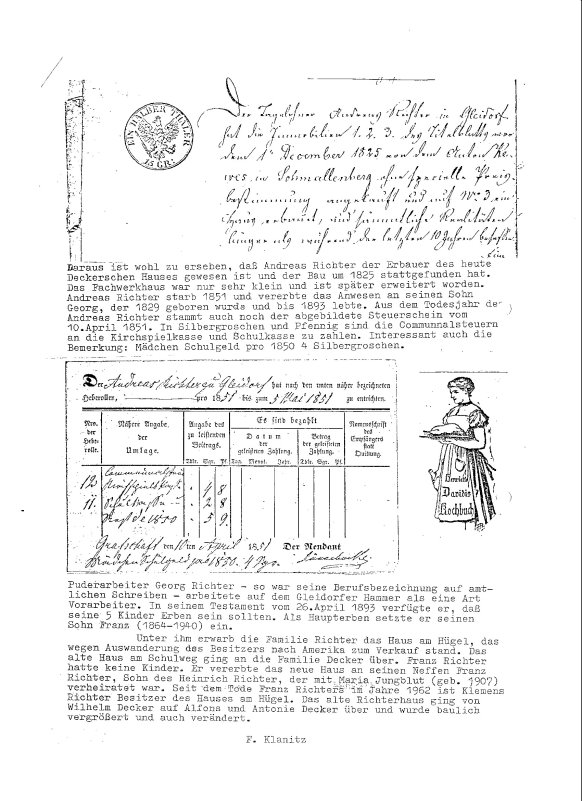 EIN HALBER THALER
15 GR:
Der Tagelöhner Andreas Richter in Gleidorf
hat die Immobilien 1. 2. 3. des Titelblatts
dem 1 December 1825 von dem Anton
in Schmallenberg ohne specielle Preis
bestimmung angekauft und auf No 3 ein
Haus erbauet, und sämmtliche Realitäten
länger als während der letzten 10 Jahre
Daraus ist wohl zu ersehen, daß Andreas Richter der Erbauer des heute
Deckerschen Hauses gewesen ist und der Bau um 1825 stattgefunden hat.
Das Fachwerkhaus war nur sehr klein und ist später erweitert worden.
Andreas Richter starb 1851 und vererbte das Anwesen an seinen Sohn
Georg, der 1829 geboren wurde und bis 1893 lebte. Aus dem Todesjahr de
Andreas Richter stammt auch noch der abgebildete Steuerschein vom
10.April 1851. In Silbergroschen und Pfennig sind die Communnalsteuern
an die Kirchspielkasse und Schulkasse zu zahlen. Interessant auch die
Bemerkung: Mädchen Schulgeld pro 1850 4 Silbergroschen.
Der Andreas Richter zu Gleidorf hat nach den unten näher bezeichneten
Heberollen, pro 1851 bis zum 5 Mai 1851 zu entrichten.
Nro. der Heberolle. Nähere Angabe. der Umlage. Angabe des zu leistenden Beitrags. Es sind bezahlt Namensschrift des Empfängers statt Quittung.
Datum der geleisteten Zahlung. Betrag der geleisteten Zahlung.
Thlr. Sgr. Pf. Tag. Monat. Jahr. Thlr. Sgr. Pf.
12 4 8
11. 2 8
1850 5 9
Grafschaft den 10ten April 1851 Der Rendant
Mädchen Schulgeld pro 1850. 4 Sgr.
Henriette
Davidis
Kochbuch
Puderarbeiter Georg Richter - so war seine Berufsbezeichnung auf amt-
lichen Schreiben - arbeitete auf dem Gleidorfer Hammer als eine Art
Vorarbeiter. In seinem Testament vom 26.April 1893 verfügte er, daß
seine 5 Kinder Erben sein sollten. Als Haupterben setzte er seinen
Sohn Franz (1864-1940) ein.
Unter ihm erwarb die Familie Richter das Haus am Hügel, das
wegen Auswanderung des Besitzers nach Amerika zum Verkauf stand. Das
alte Haus am Schulweg ging an die Familie Decker über. Franz Richter
hatte keine Kinder. Er vererbte das neue Haus an seinen Neffen Franz
Richter, Sohn des Heinrich Richter, der mit Maria Jungblut (geb. 1907)
verheiratet war. Seit dem Tode Franz Richters im Jahre 1962 ist Klemens
Richter Besitzer des Hauses am Hügel. Das alte Richterhaus ging von
Wilhelm Decker auf Alfons und Antonie Decker über und wurde baulich
vergrößert und auch verändert.
F. Klanitz